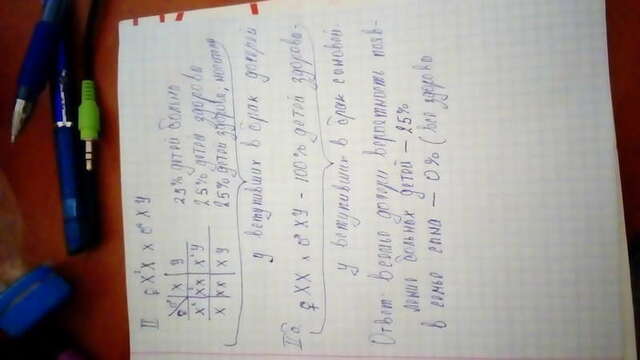 II ♀ X'X x ♂ XY
♀\♂ X Y
X' X'X X'Y
X XX XY
25% детей больно
25% детей здорово
25% детей здорово, носител
у вступивших в брак дочерей
II a. ♀ XX x ♂ XY - 100% детей здоровы.
у вступивших в брак сыновей.
Ответ: в семье дочери вероятность появ-
ления больных детей - 25%
в семье сына - 0% (все здоровы